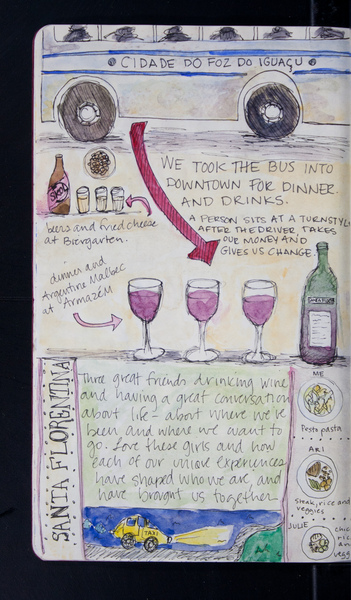 CIDADE DO FOZ DO IGUAÇU
WE TOOK THE BUS INTO
DOWNTOWN FOR DINNER
AND DRINKS.
A PERSON SITS AT A TURNSTYL
AFTER THE DRIVER, TAKES
OUR MONEY AND
GIVES US CHANGE.
beers and fried cheese
at Biergarten.
dinner and
Argentine Malbec
at Armazém
SANTA FLORENTINA
Three great friends drinking wine
and having a great conversation
about life - about where we've
been and where we want to
go. Love these girls and how
each of our unique experiences
have shaped who we are, and
have brought us together.
TAXI
ME
Pesto pasta
ARI
Steak, rice and
veggies
JULIE